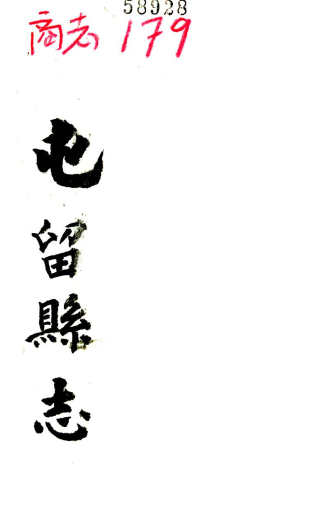 58928
商志 179
屯留縣志